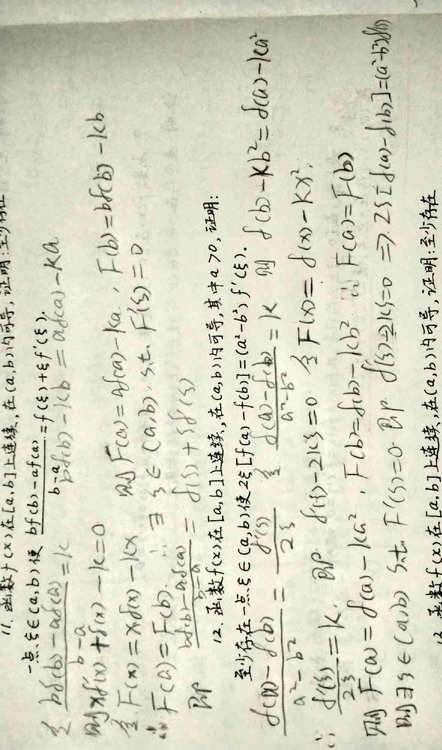 11. 函数f(x)在[a,b]上连续,在(a,b)内可导,证明:至少存在
一点ξ∈(a,b)使 (bf(b)-af(a))/(b-a) = f(ξ)+ξf'(ξ).
令 (bf(b)-af(a))/(b-a) = k bf(b)-kb = af(a)-ka
则 xf'(x)+f(x)-k=0
令F(x)=xf(x)-kx 则F(a)=af(a)-ka, F(b)=bf(b)-kb
∵ F(a)=F(b). ∴ ∃ξ∈(a,b). s.t. F'(ξ)=0
即 (bf(b)-af(a))/(b-a) = f(ξ)+ξf'(ξ)
12. 函数f(x)在[a,b]上连续,在(a,b)内可导,其中a>0,证明:
至少存在一点ξ∈(a,b)使2ξ[f(a)-f(b)]=(a²-b²)f'(ξ).
(f(a)-f(b))/(a²-b²) = f'(ξ)/2ξ 令 (f(a)-f(b))/(a²-b²) = k 则 f(b)-kb²=f(a)-ka²
∵ f'(ξ)/2ξ = k. 即 f'(ξ)-2kξ=0 令F(x)=f(x)-kx².
则F(a)=f(a)-ka², F(b)=f(b)-kb² ∵ F(a)=F(b)
则∃ξ∈(a,b) s.t. F'(ξ)=0 即 f'(ξ)-2kξ=0 ⇒ 2ξ[f(a)-f(b)]=(a²-b²)f'(ξ)
13. 函数f(x)在[a,b]上连续,在(a,b)内可导,证明:至少存在